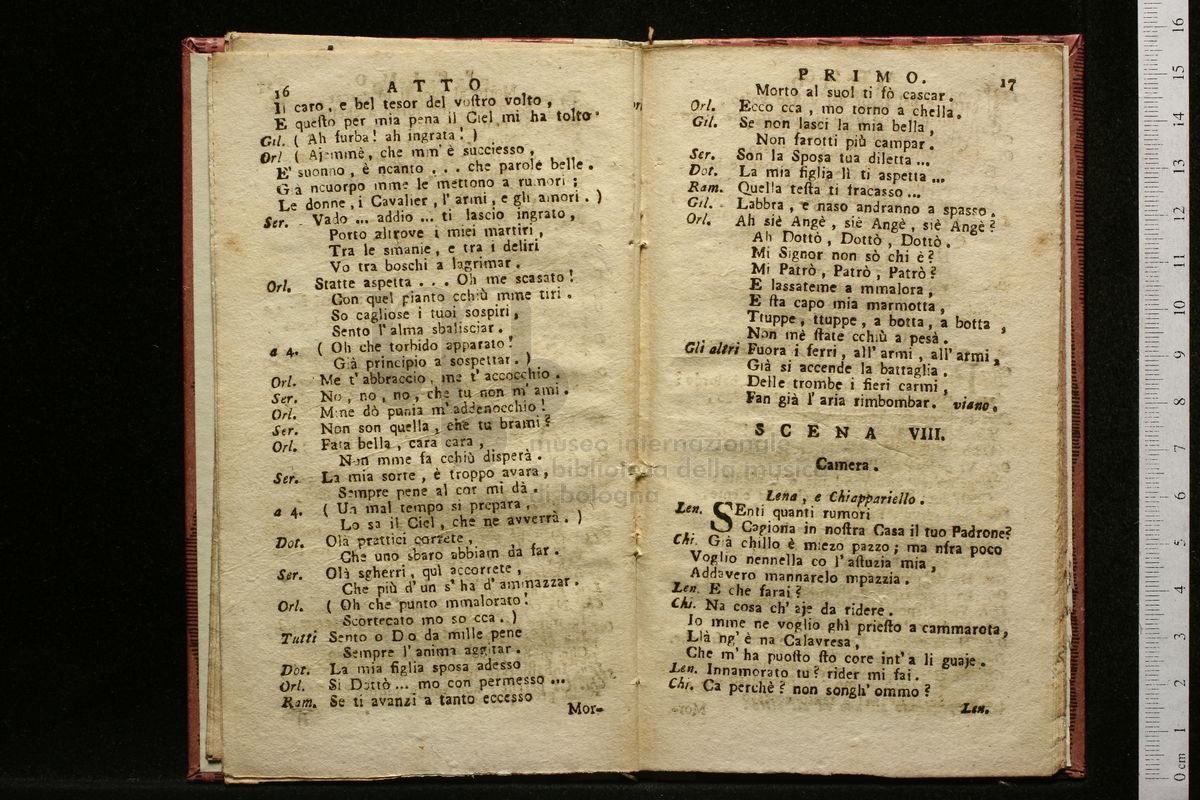 16 ATTO
Il caro, e bel tesor del vostro volto,
E questo per mia pena il Ciel mi ha tolto.
Gil. ( Ah furba! ah ingrata! )
Orl ( Ajemmè, che mm' è successo,
E' suonno, è ncanto . . . che parole belle.
Già ncuorpo mme le mettono a rumori;
Le donne, i Cavalier, l' armi, e gli amori. )
Ser. Vado ... addio ... ti lascio ingrato,
Porto altrove i miei martiri,
Tra le smanie, e tra i deliri
Vo tra boschi a lagrimar.
Orl. Statte aspetta . . . Oh me scasato!
Con quel pianto cchiù mme tiri.
So cagliose i tuoi sospiri,
Sento l' alma sbalisciar.
a 4. ( Oh che torbido apparato!
Già principio a sospettar. )
Orl. Me t' abbraccio, me t' accocchio.
Ser. No, no, no, che tu non m' ami.
Orl. Mme dò punia m' addenocchio!
Ser. Non son quella, che tu brami?
Orl. Fata bella, cara cara,
Non mme fa cchiù disperà.
Ser. La mia sorte, è troppo avara,
Sempre pene al cor mi dà.
a 4. ( Un mal tempo si prepara,
Lo sa il Ciel, che ne avverrà. )
Dot. Olà prattici correte,
Che uno sbaro abbiam da far.
Ser. Olà sgherri, quì accorrete,
Che più d' un s' ha d' ammazzar.
Orl. ( Oh che punto mmalorato!
Scortecato mo so cca. )
Tutti Sento o Do da mille pene
Sempre l' anima aggitar.
Dot. La mia figlia sposa adesso
Orl. Si Dottò ... mo con permesso ...
Ram. Se ti avanzi a tanto eccesso
Mor-
PRIMO. 17
Morto al suol ti fò cascar.
Orl. Ecco cca, mo torno a chella.
Gil. Se non lasci la mia bella,
Non farotti più campar.
Ser. Son la Sposa tua diletta ...
Dot. La mia figlia lì ti aspetta ...
Ram. Quella testa ti fracasso ...
Gil. Labbra, e naso andranno a spasso.
Orl. Ah siè Angè, siè Angè, siè Angè?
Ah Dottò, Dottò, Dottò.
Mi Signor non sò chi è?
Mi Patrò, Patrò, Patrò?
E lassateme a mmalora,
E sta capo mia marmotta,
Ttuppe, ttuppe, a botta, a botta,
Non mè state cchiù a pesà.
Gli altri Fuora i ferri, all' armi, all' armi,
Già si accende la battaglia.
Delle trombe i fieri carmi,
Fan già l' aria rimbombar. viano.
SCENA VIII.
Camera.
Lena, e Chiappariello.
Len. SEnti quanti rumori
Cagiona in nostra Casa il tuo Padrone?
Chi. Già chillo è miezo pazzo; ma nfra poco
Voglio nennella co l' astuzia mia,
Addavero mannarelo mpazzia.
Len. E che farai?
Chi. Na cosa ch' aje da ridere.
Io mme ne voglio ghì priesto a cammarota,
Llà ng' è na Calavresa,
Che m' ha puosto sto core int' a li guaje.
Len. Innamorato tu? rider mi fai.
Chi. Ca perchè? non songh' ommo?
Len.
museo internazionale
e biblioteca della musica
di bologna
0 cm 1 2 3 4 5 6 7 8 9 10 11 12 13 14 15 16